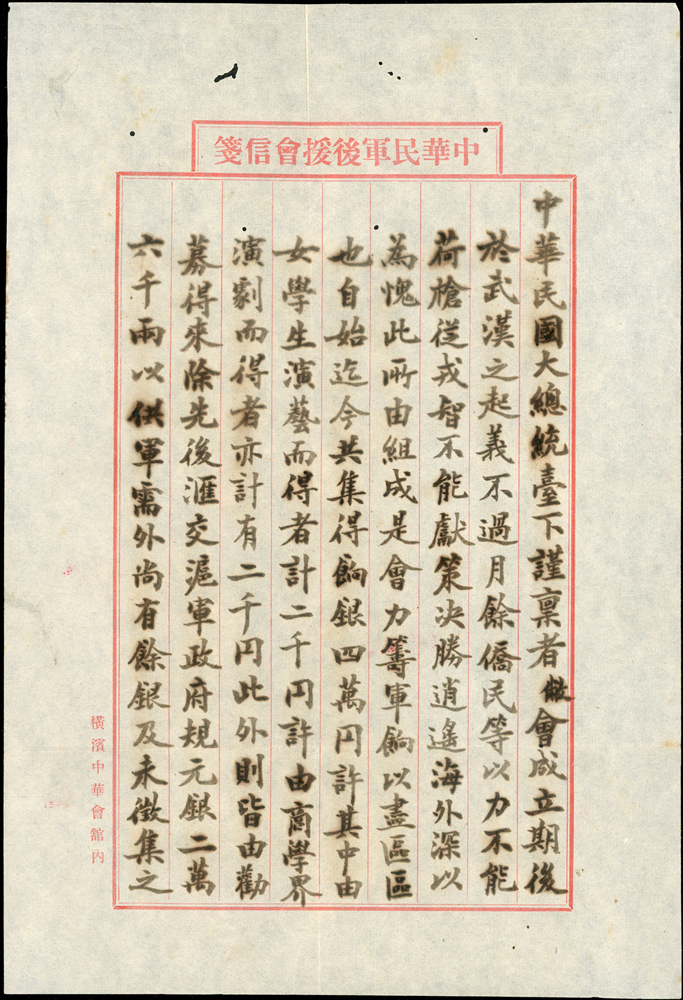 中華民軍後援會信箋
中華民國大總統臺下謹稟者敝會成立期後
於武漢之起義不過月餘僑民等以力不能
荷槍從戎智不能獻策決勝逍遙海外深以
為愧此所由組成是會力籌軍餉以盡區區
也自始迄今共集得餉銀四萬円許其中由
女學生演藝而得者計二千円許由商學界
演劇而得者亦計有二千円此外則皆由勸
募得來除先後滙交滬軍政府規元銀二萬
六千兩以供軍需外尚有餘銀及未徵集之
橫濱中華會館內